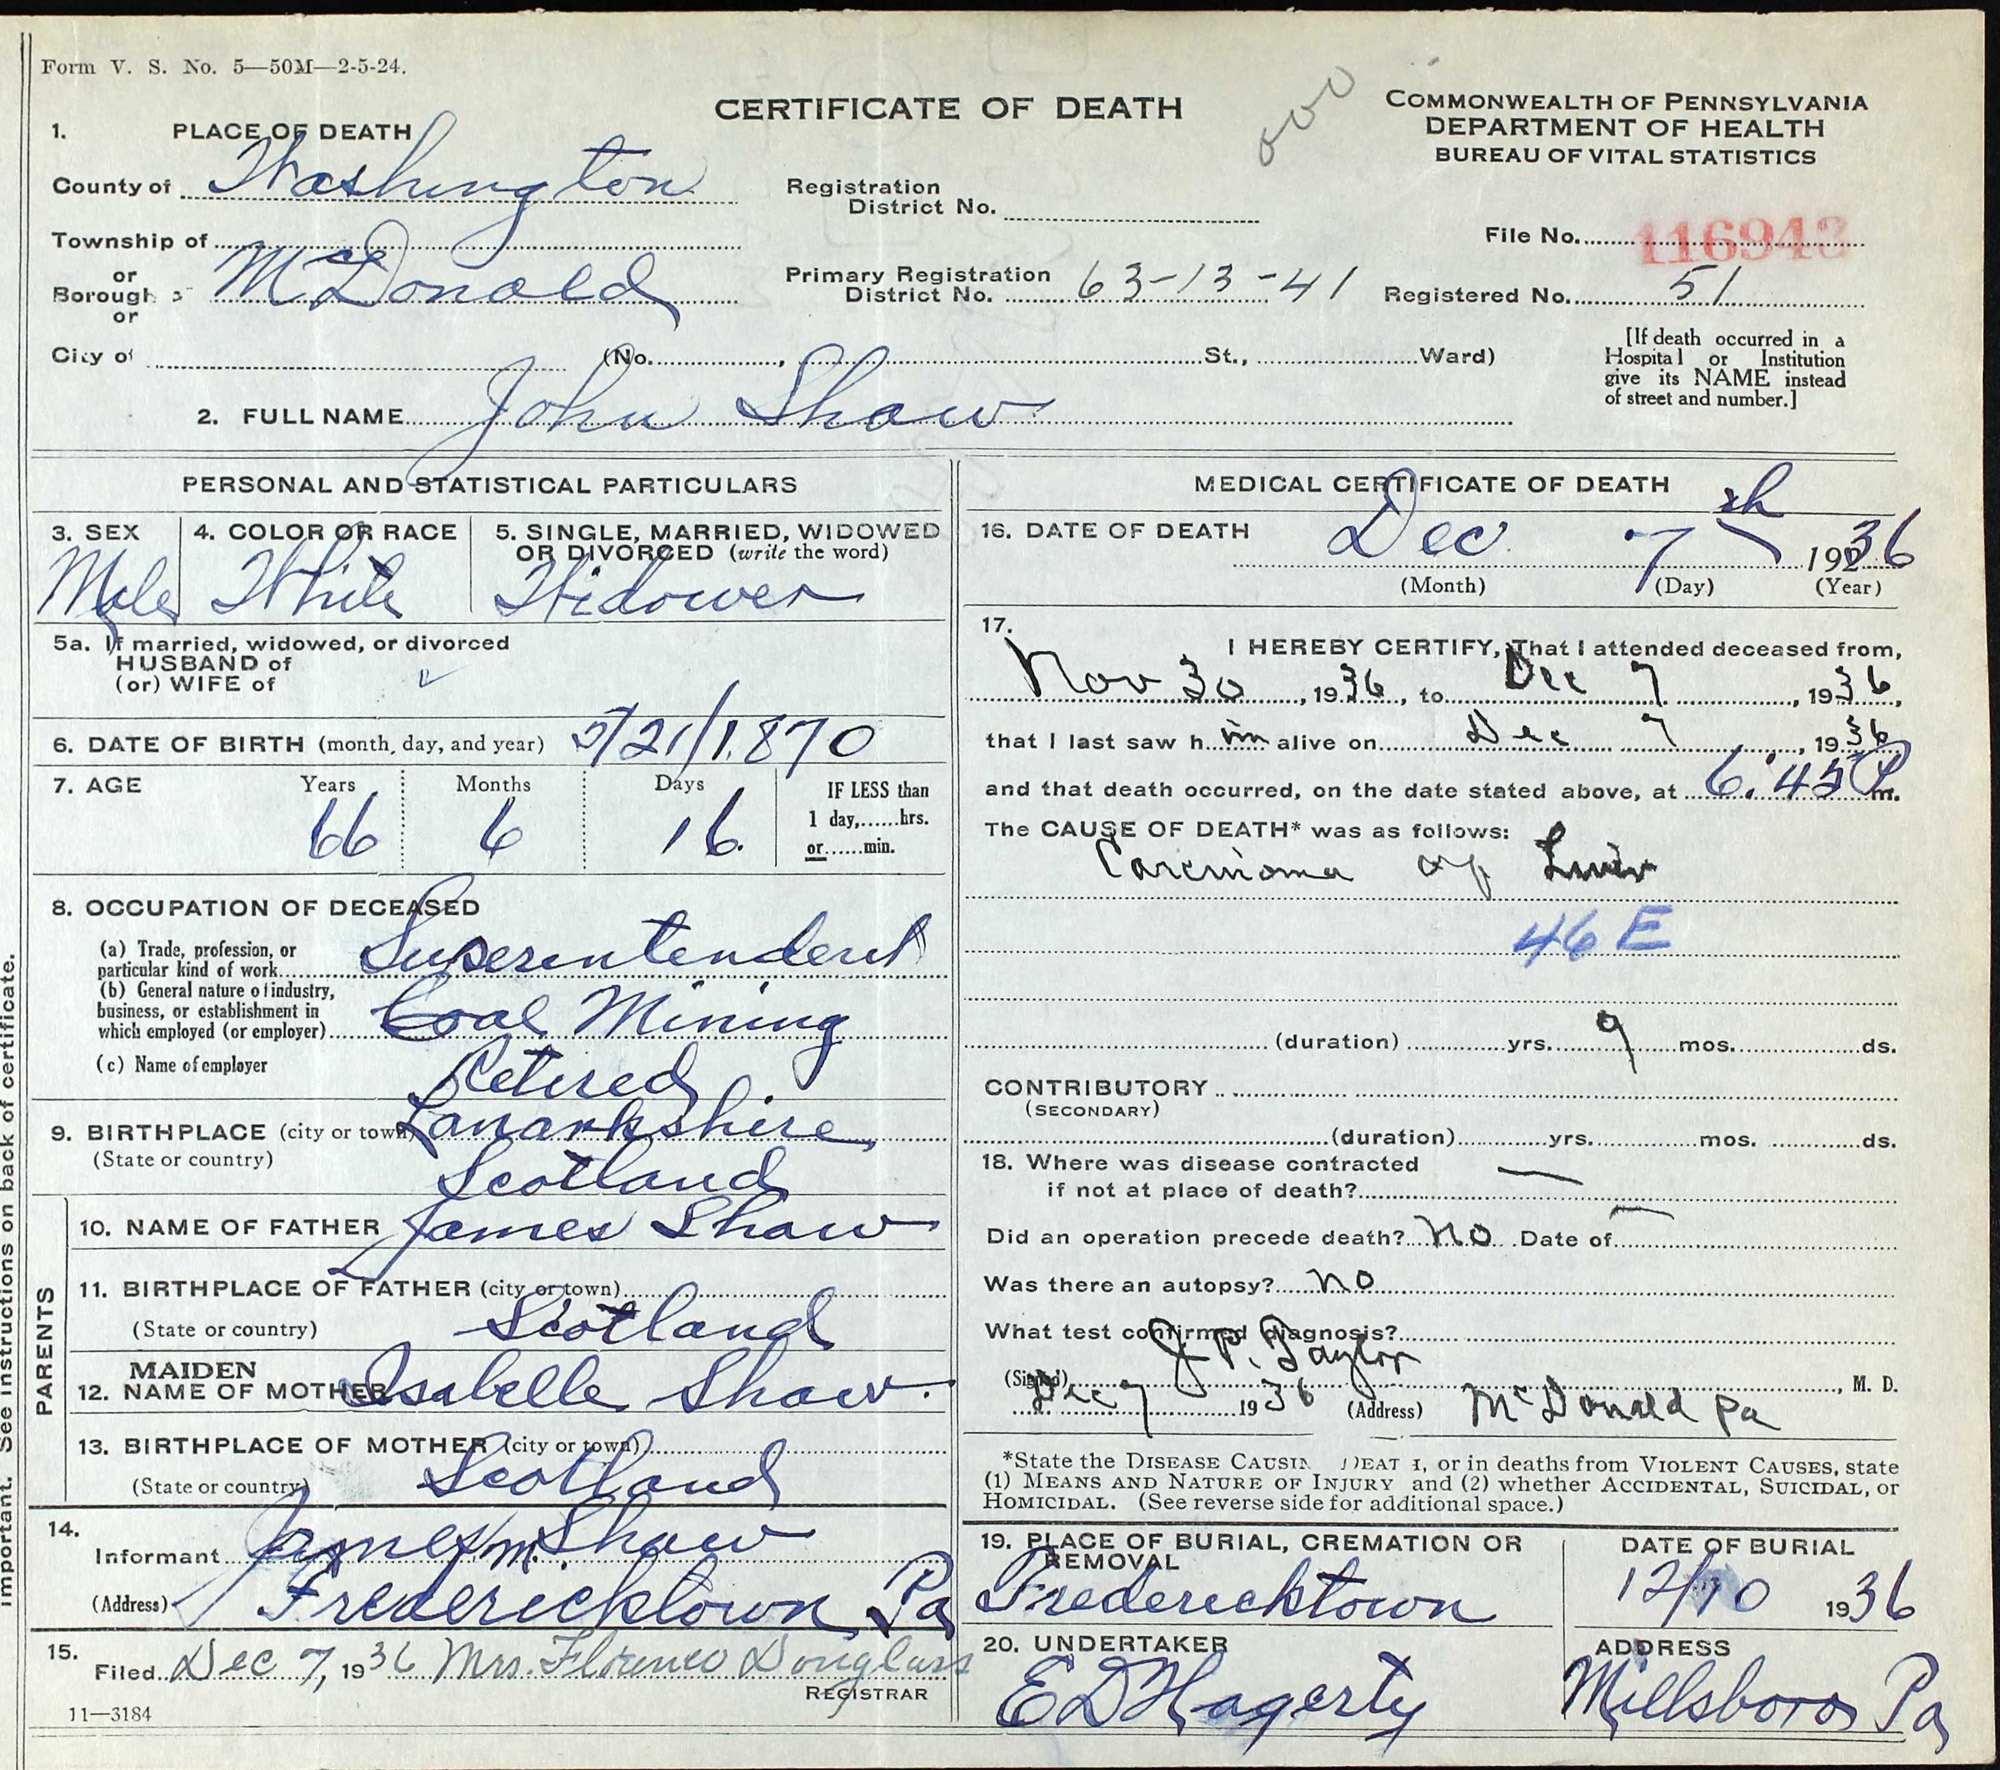 Form V. S. No. 5—50M—2-5-24.
CERTIFICATE OF DEATH
COMMONWEALTH OF PENNSYLVANIA
DEPARTMENT OF HEALTH
BUREAU OF VITAL STATISTICS
1. PLACE OF DEATH
County of Washington
Registration District No.
File No. 116943
Township of
or
Borough of McDonald
or
Primary Registration District No. 63-13-41
Registered No. 51
City of (No. , St., Ward)
[If death occurred in a Hospital or Institution give its NAME instead of street and number.]
2. FULL NAME John Shaw
PERSONAL AND STATISTICAL PARTICULARS
3. SEX Male
4. COLOR OR RACE White
5. SINGLE, MARRIED, WIDOWED OR DIVORCED (write the word) Widower
5a. If married, widowed, or divorced
HUSBAND of
(or) WIFE of
6. DATE OF BIRTH (month, day, and year) 5/21/1870
7. AGE Years 66 Months 6 Days 16.
IF LESS than
1 day,......hrs.
or......min.
8. OCCUPATION OF DECEASED
(a) Trade, profession, or particular kind of work Superentendent
(b) General nature of industry, business, or establishment in which employed (or employer) Coal Mining
(c) Name of employer Retired
9. BIRTHPLACE (city or town) Lanarkshire,
(State or country) Scotland
PARENTS
10. NAME OF FATHER James Shaw
11. BIRTHPLACE OF FATHER (city or town)
(State or country) Scotland
12. MAIDEN NAME OF MOTHER Isabelle Shaw.
13. BIRTHPLACE OF MOTHER (city or town)
(State or country) Scotland
14.
Informant James M. Shaw
(Address) Fredericktown, Pa
15.
Filed Dec 7, 1936 Mrs. Florence Douglass
REGISTRAR
11—3184
MEDICAL CERTIFICATE OF DEATH
16. DATE OF DEATH Dec. 7th 1936
(Month) (Day) (Year)
17.
I HEREBY CERTIFY, That I attended deceased from,
Nov 30, 1936, to Dec 7, 1936,
that I last saw him alive on Dec 7, 1936
and that death occurred, on the date stated above, at 6:45 P m.
The CAUSE OF DEATH* was as follows:
Carcinoma of Liver
46 E
(duration) yrs. 9 mos. ds.
CONTRIBUTORY
(SECONDARY)
(duration) yrs. mos. ds.
18. Where was disease contracted
if not at place of death? —
Did an operation precede death? No Date of —
Was there an autopsy? no
What test confirmed diagnosis?
(Signed) J. P. Taylor, M. D.
Dec 7 1936 (Address) McDonald Pa
*State the DISEASE CAUSING DEATH, or in deaths from VIOLENT CAUSES, state
(1) MEANS AND NATURE OF INJURY and (2) whether ACCIDENTAL, SUICIDAL, or
HOMICIDAL. (See reverse side for additional space.)
19. PLACE OF BURIAL, CREMATION OR REMOVAL Fredericktown
DATE OF BURIAL 12/10 1936
20. UNDERTAKER E D Hagerty
ADDRESS Millsboro Pa
important. See instructions on back of certificate.